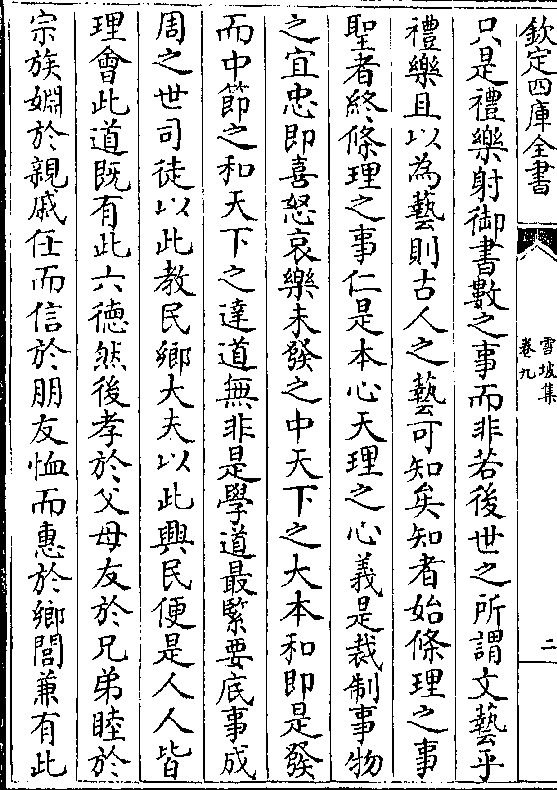 欽定四庫全書
雪坡集
卷九
二
只是禮樂射御書數之事而非若後世之所謂文藝乎
禮樂且以為藝則古人之藝可知矣知者始條理之事
聖者終條理之事仁是本心天理之心義是裁制事物
之宜忠即喜怒哀樂未發之中天下之大本和即是發
而中節之和天下之達道無非是學道最緊要底事成
周之世司徒以此教民鄉大夫以此興民便是人人皆
理會此道既有此六德然後孝於父母友於兄弟睦於
宗族婣於親戚任而信於朋友恤而惠於鄉閭兼有此